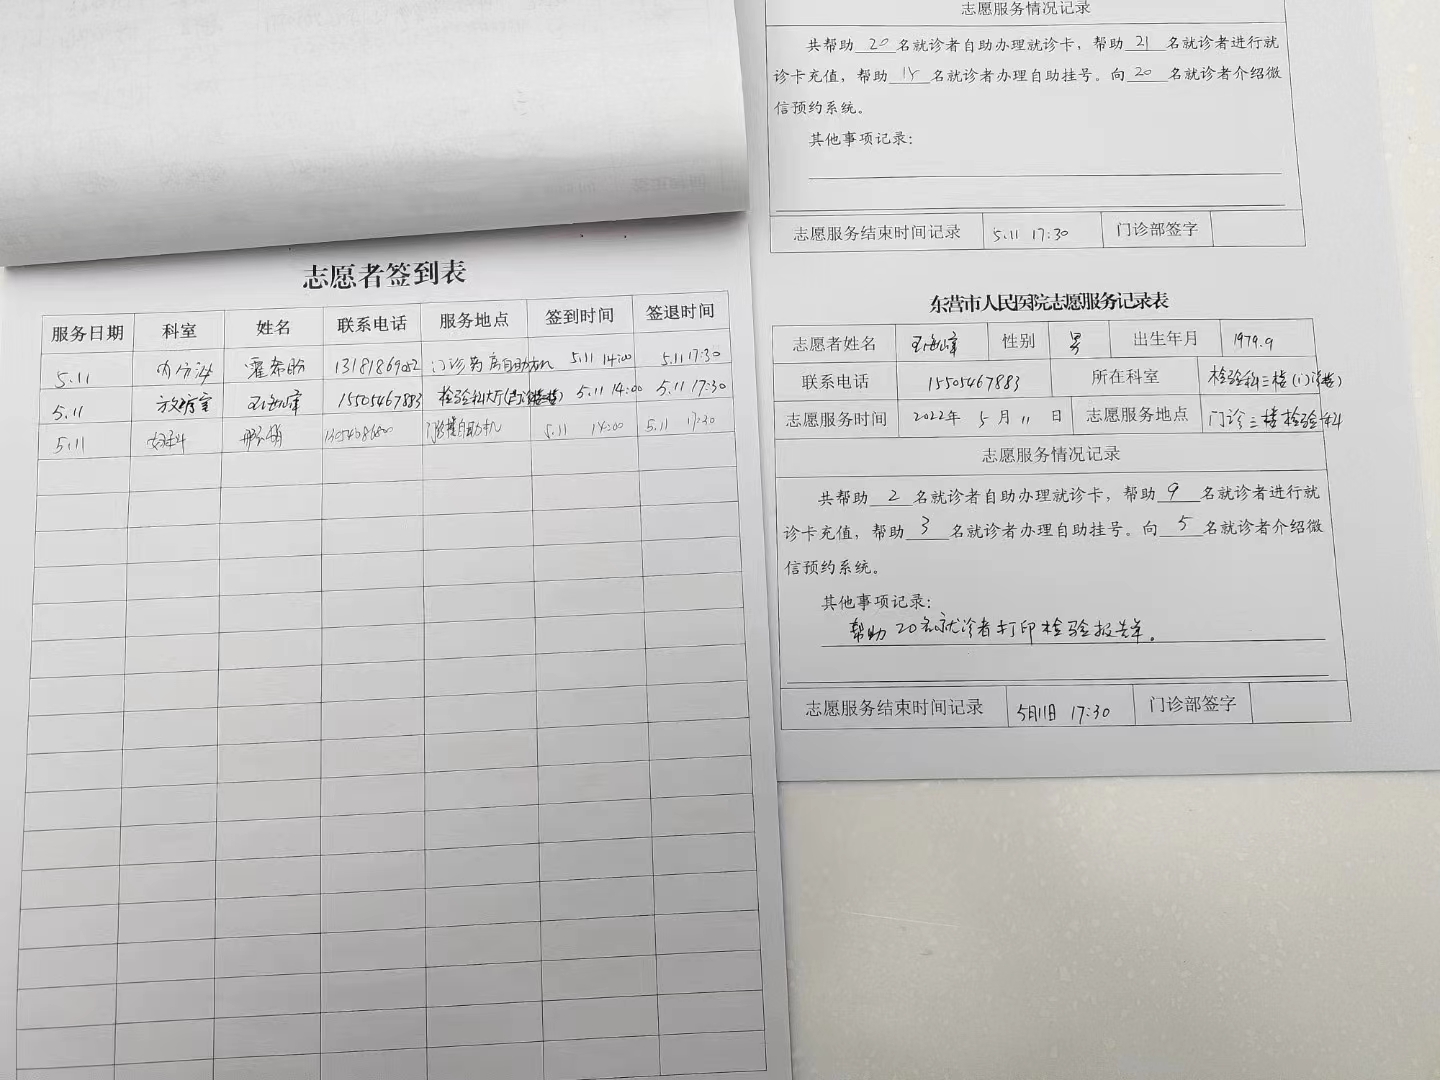 志愿者签到表
服务日期 科室 姓名 联系电话 服务地点 签到时间 签退时间
5.11 内分泌 霍希盼 13181869052 门诊药房自助机 5.11 14:00 5.11 17:30
5.11 放疗室 王海峰 15505467883 检验科大厅 5.11 14:00 5.11 17:30
5.11 自助机 5.11 14:00 5.11 17:30
志愿服务情况记录
共帮助 20 名就诊者自助办理就诊卡，帮助 21 名就诊者进行就
诊卡充值，帮助 名就诊者办理自助挂号。向 20 名就诊者介绍微
信预约系统。
其他事项记录：
志愿服务结束时间记录 5.11 17:30 门诊部签字
东营市人民医院志愿服务记录表
志愿者姓名 王海峰 性别 男 出生年月 1979.9
联系电话 15505467883 所在科室 检验科三楼(门诊楼)
志愿服务时间 2022年 5 月 11 日 志愿服务地点 门诊三楼检验科
志愿服务情况记录
共帮助 2 名就诊者自助办理就诊卡，帮助 9 名就诊者进行就
诊卡充值，帮助 3 名就诊者办理自助挂号。向 5 名就诊者介绍微
信预约系统。
其他事项记录：
帮助20名就诊者打印检验报告单。
志愿服务结束时间记录 5月11日 17:30 门诊部签字